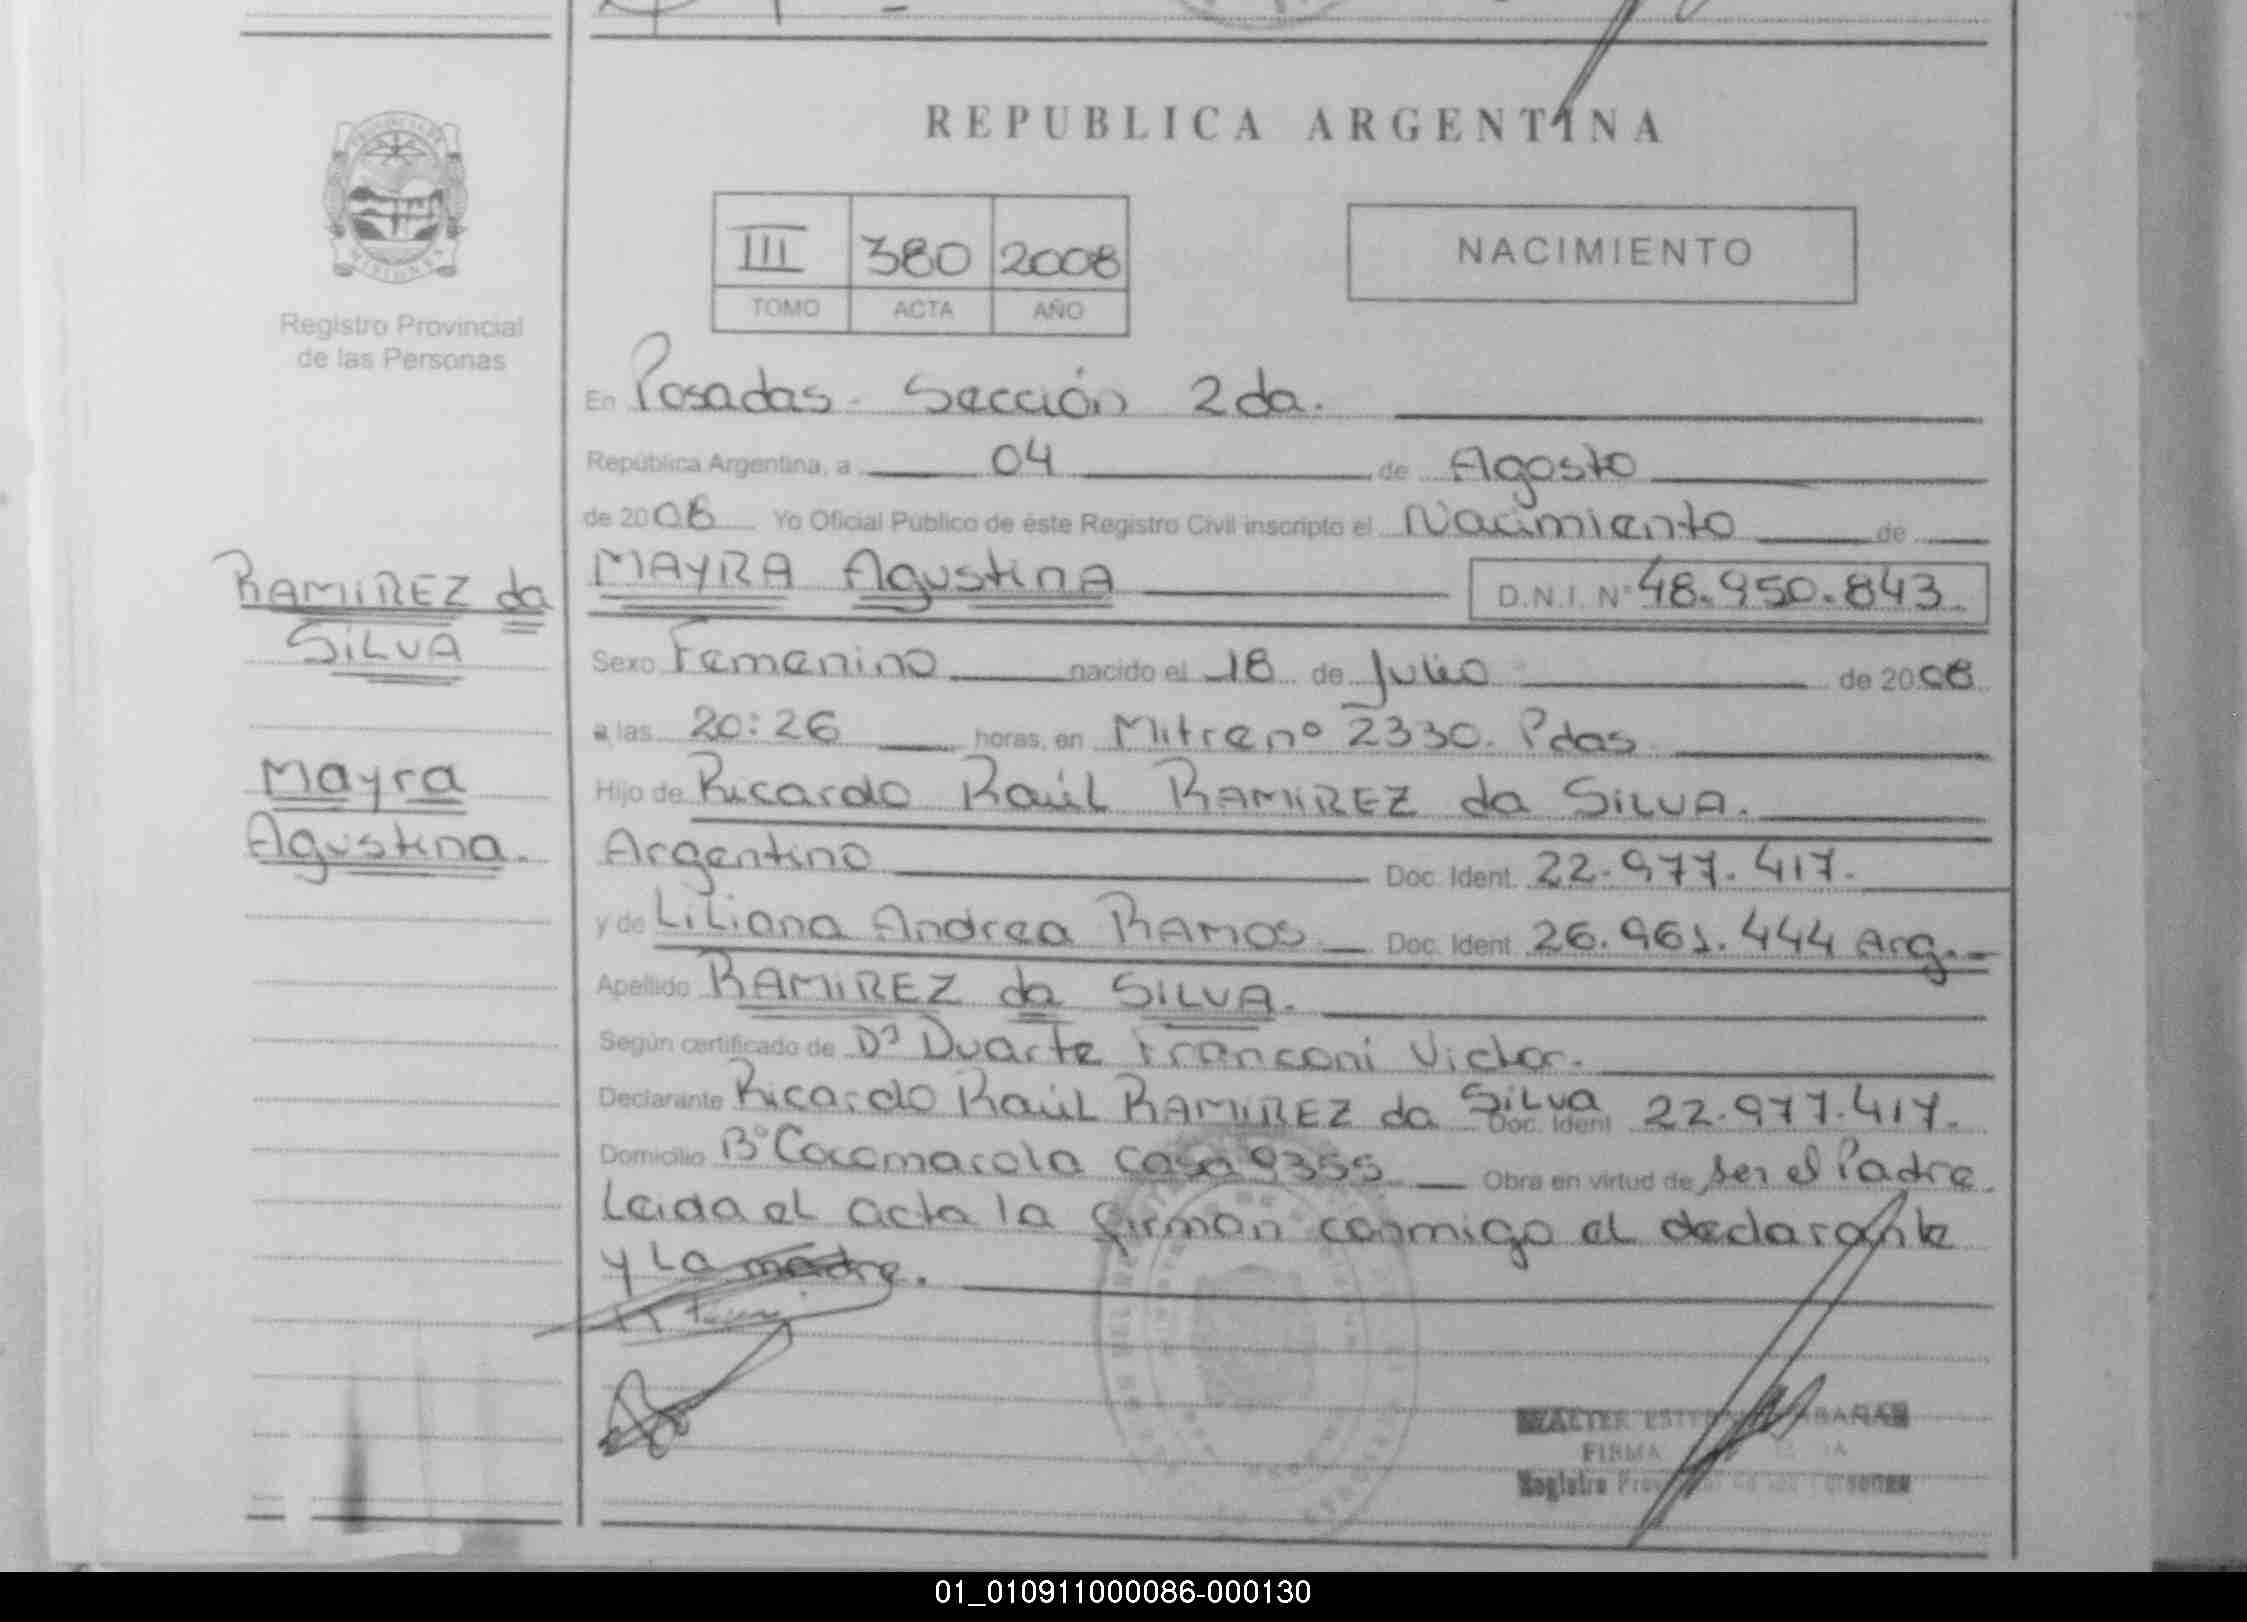 REPUBLICA ARGENTINA
III 380 2008
TOMO ACTA AÑO
NACIMIENTO
PROVINCIA DE
MISIONES
Registro Provincial
de las Personas
RAMIREZ da
SILVA
Mayra
Agustina.
En Posadas - Sección 2da.
República Argentina, a 04 de Agosto
de 2008 Yo Oficial Público de éste Registro Civil inscripto el Nacimiento de
MAYRA Agustina D.N.I. Nº 48.950.843
Sexo Femenino nacido el 18 de Julio de 2008
a las 20:26 horas, en Mitre nº 2330. Pdas
Hijo de Ricardo Raúl RAMIREZ da SILVA.
Argentino Doc. Ident. 22.977.417.
y de Liliana Andrea RAMOS Doc. Ident 26.961.444 Arg.-
Apellido RAMIREZ da SILVA.
Según certificado de Dº Duarte Franconi Victor.
Declarante Ricardo Raúl RAMIREZ da Silva Doc. Ident 22.977.417.
Domicilio Bº Cocomarola Casa 9355 Obra en virtud de ser el Padre
Leida el acta la firman conmigo el declarante
y La madre.
FIRMA
Registro
01_010911000086-000130